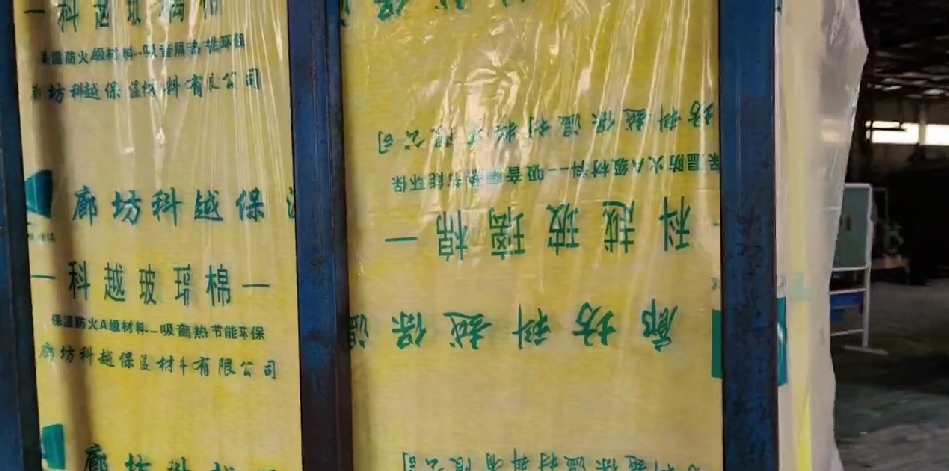 科越玻璃棉
保温防火A级材料--吸音隔热节能环保
廊坊科越保温材料有限公司
廊坊科越保温
一科越玻璃棉一
保温防火A级材料--吸音隔热节能环保
廊坊科越保温材料有限公司
廊坊科越保
廊坊科越保温
一科越玻璃棉一
保温防火A级材料--吸音隔热节能环保
坊科越保温材料有限公司
科越保温材料有限公司